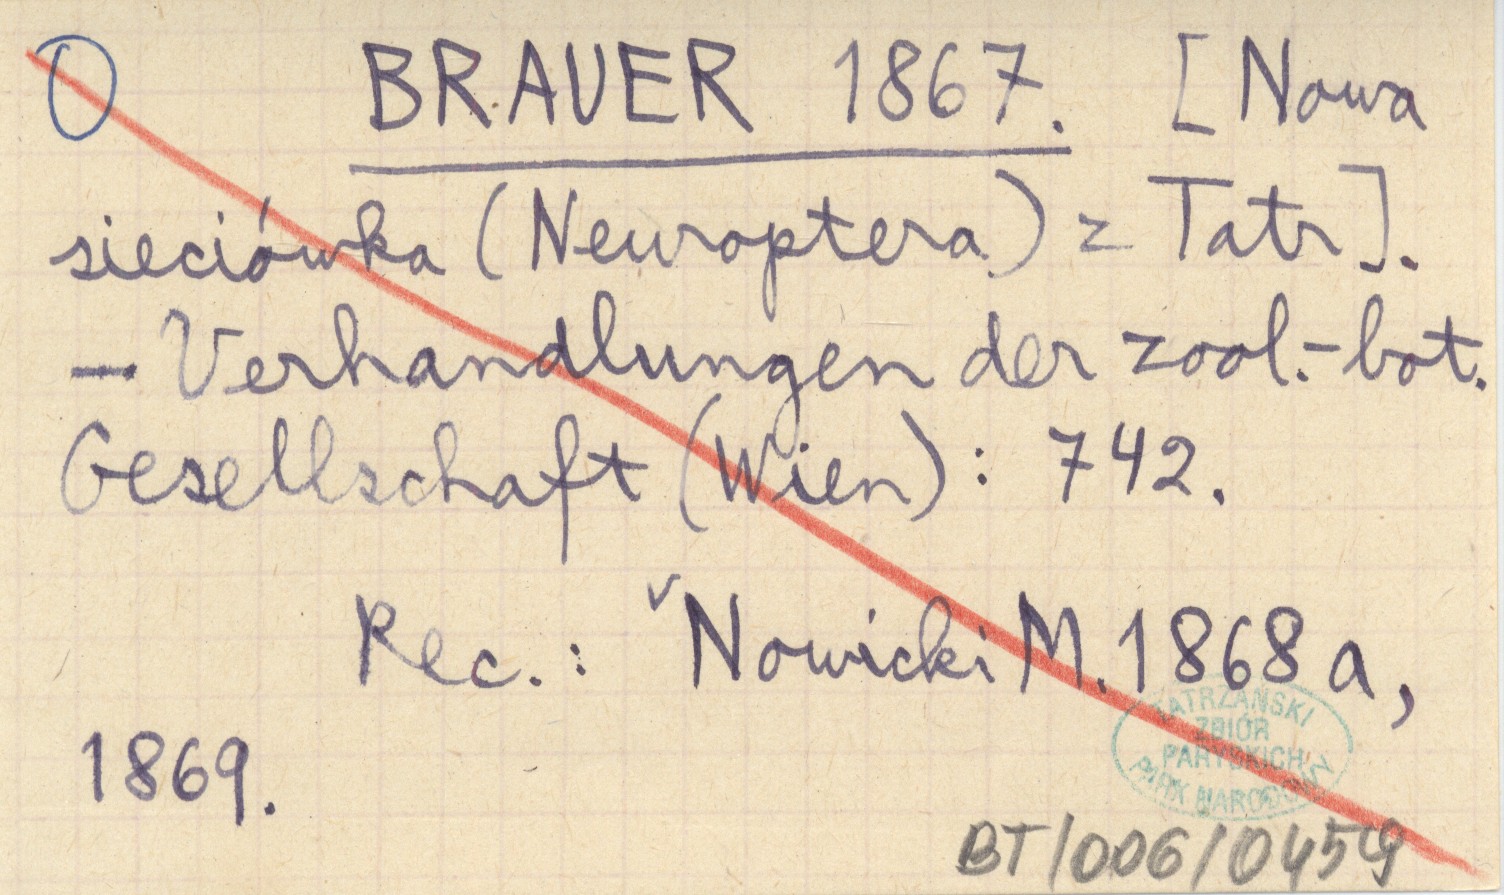 O BRAUER 1867. [Nowa
sieciówka (Neuroptera) z Tatr].
— Verhandlungen der zool.-bot.
Gesellschaft (Wien): 742.
Rec.: ᵛNowicki M. 1868a,
1869.
TATRZAŃSKI
ZBIÓR
PARYSKICH
PARK NARODOWY
BT/006/0459